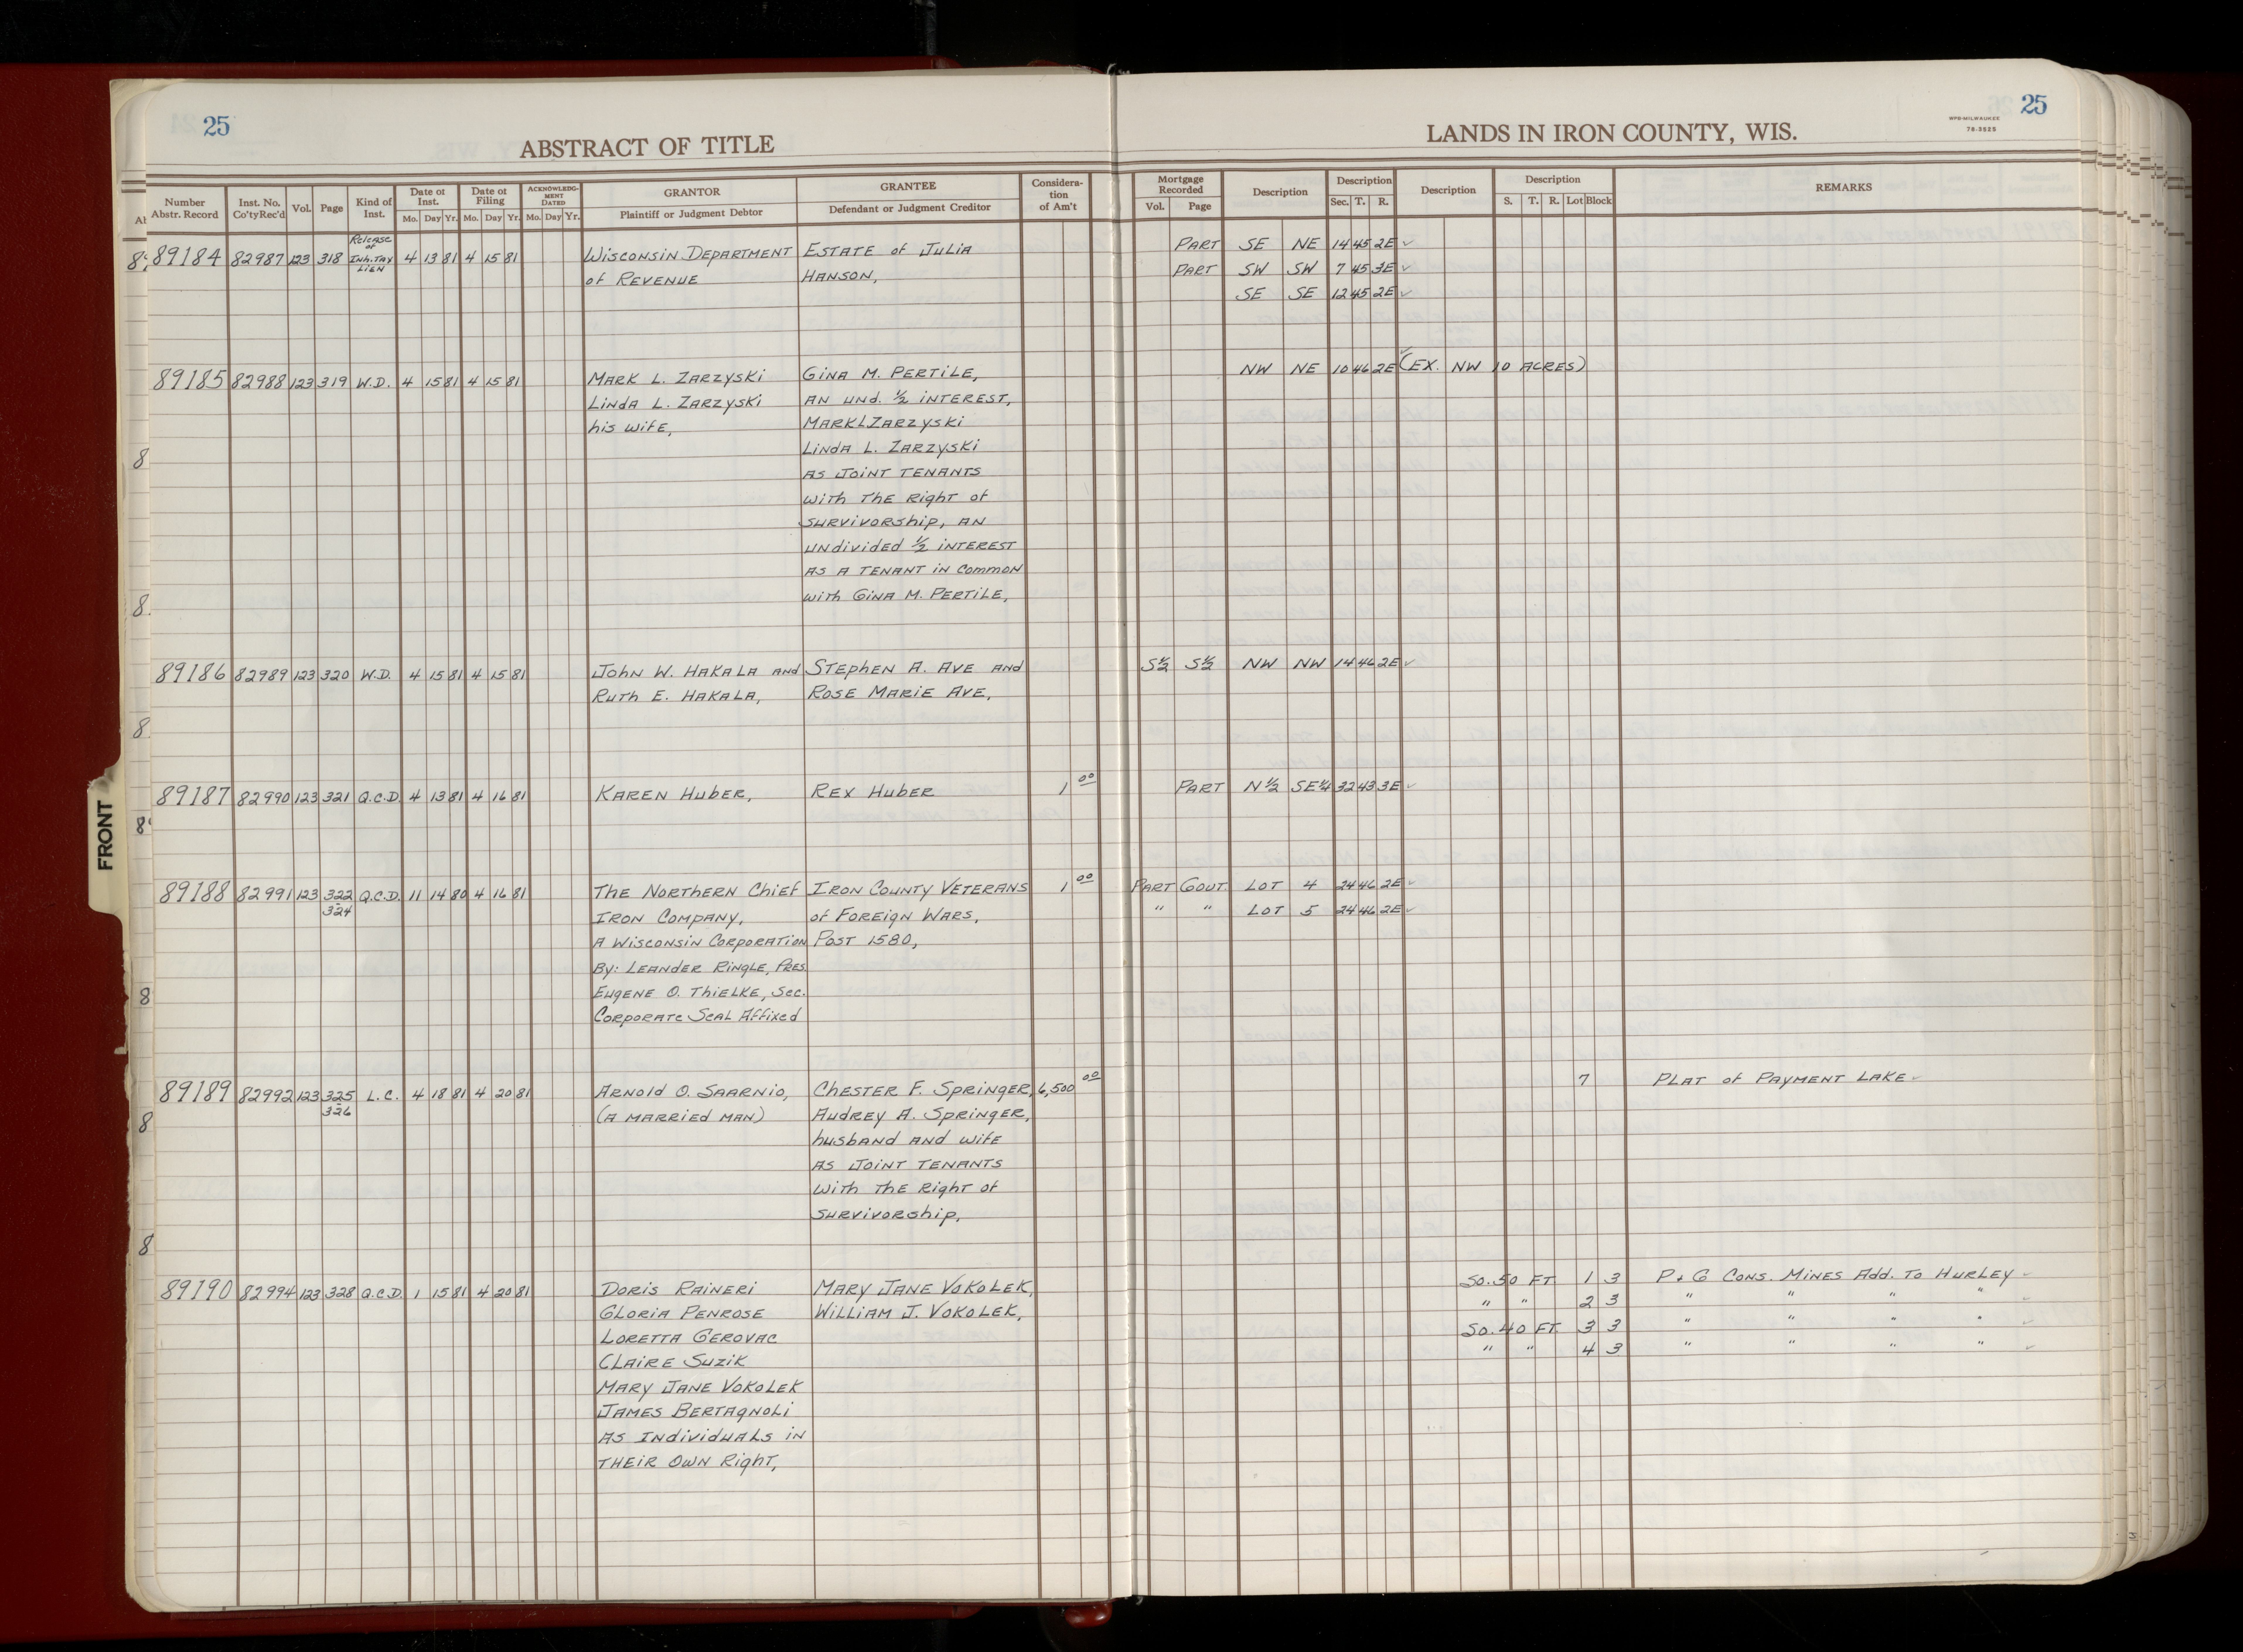 25
ABSTRACT OF TITLE
LANDS IN IRON COUNTY, WIS.
WPB-MILWAUKEE
78-3525
25
Number Abstr. Record | Inst. No. Co'ty Rec'd | Vol. | Page | Kind of Inst. | Date of Inst. Mo. Day Yr. | Date of Filing Mo. Day Yr. | ACKNOWLEDGMENT DATED Mo. Day Yr. | GRANTOR Plaintiff or Judgment Debtor | GRANTEE Defendant or Judgment Creditor | Consideration of Am't | Mortgage Recorded Vol. Page | Description | Description Sec. T. R. | Description | Description S. T. R. Lot Block | REMARKS
89184 82987 123 318 Release of Inh. Tax Lien 4 13 81 4 15 81 Wisconsin Department Estate of Julia PART SE NE 14 45 2E ✓
of Revenue Hanson, PART SW SW 7 45 3E ✓
SE SE 12 45 2E ✓
89185 82988 123 319 W.D. 4 15 81 4 15 81 Mark L. Zarzyski Gina M. Pertile, NW NE 10 46 2E ✓ (EX. NW 10 ACRES)
Linda L. Zarzyski an und. ½ interest,
his wife, Mark L Zarzyski
Linda L. Zarzyski
as joint tenants
with the right of
survivorship, an
undivided ½ interest
as a tenant in common
with Gina M. Pertile,
89186 82989 123 320 W.D. 4 15 81 4 15 81 John W. Hakala and Stephen A. Ave and S½ S½ NW NW 14 46 2E ✓
Ruth E. Hakala, Rose Marie Ave,
89187 82990 123 321 Q.C.D. 4 13 81 4 16 81 Karen Huber, Rex Huber 1 00 PART N½ SE¼ 32 43 3E ✓
89188 82991 123 322 Q.C.D. 11 14 80 4 16 81 The Northern Chief Iron County Veterans 1 00 PART GOVT. LOT 4 24 46 2E ✓
324 Iron Company, of Foreign Wars, " " LOT 5 24 46 2E ✓
A Wisconsin Corporation Post 1580,
By: Leander Ringle, Pres.
Eugene O. Thielke, Sec.
Corporate Seal Affixed
89189 82992 123 325 L.C. 4 18 81 4 20 81 Arnold O. Saarnio, Chester F. Springer, 6,500 00 7 PLAT of PAYMENT LAKE ✓
326 (a married man) Audrey A. Springer,
husband and wife
as joint tenants
with the right of
survivorship,
89190 82994 123 328 Q.C.D. 1 15 81 4 20 81 Doris Raineri Mary Jane Vokolek, So. 50 FT. 1 3 P + G Cons. Mines Add. To Hurley ✓
Gloria Penrose William J. Vokolek, " " 2 3 " " " " ✓
Loretta Gerovac So. 40 FT. 3 3 " " " " ✓
Claire Suzik " " 4 3 " " " " ✓
Mary Jane Vokolek
James Bertagnoli
as individuals in
their own right,
FRONT